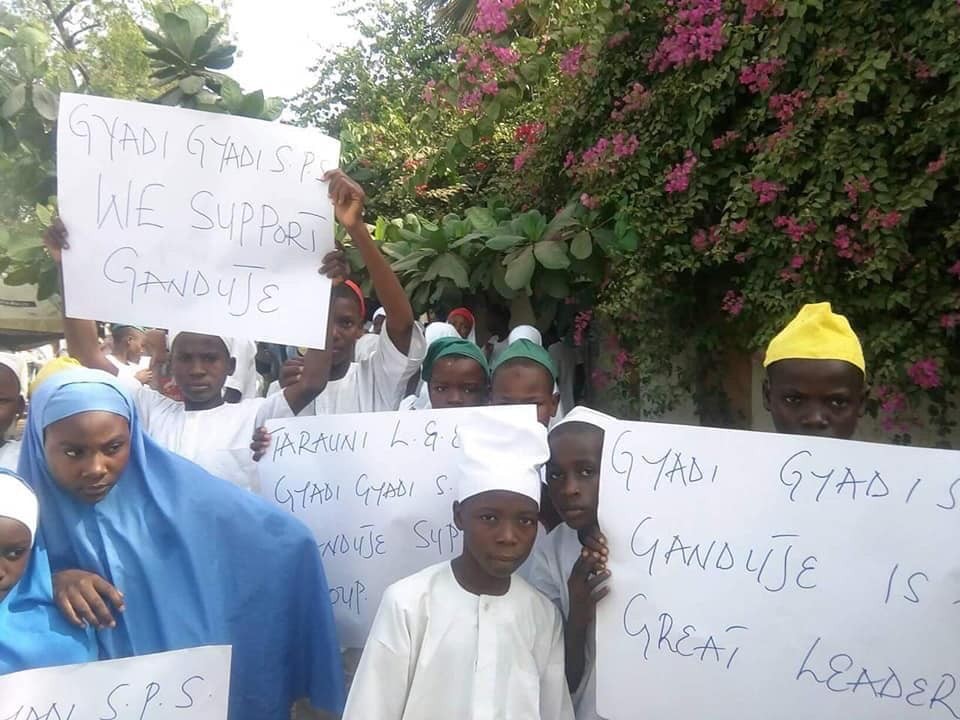 GYADI GYADI S.P.S
WE SUPPORT
GANDUJE
TARAUNI L.G.E
GYADI GYADI S.
NDUJE SUP
OUP.
GYADI GYADI S
GANDUJE IS
GREAT LEADER
ADI S.P.S.